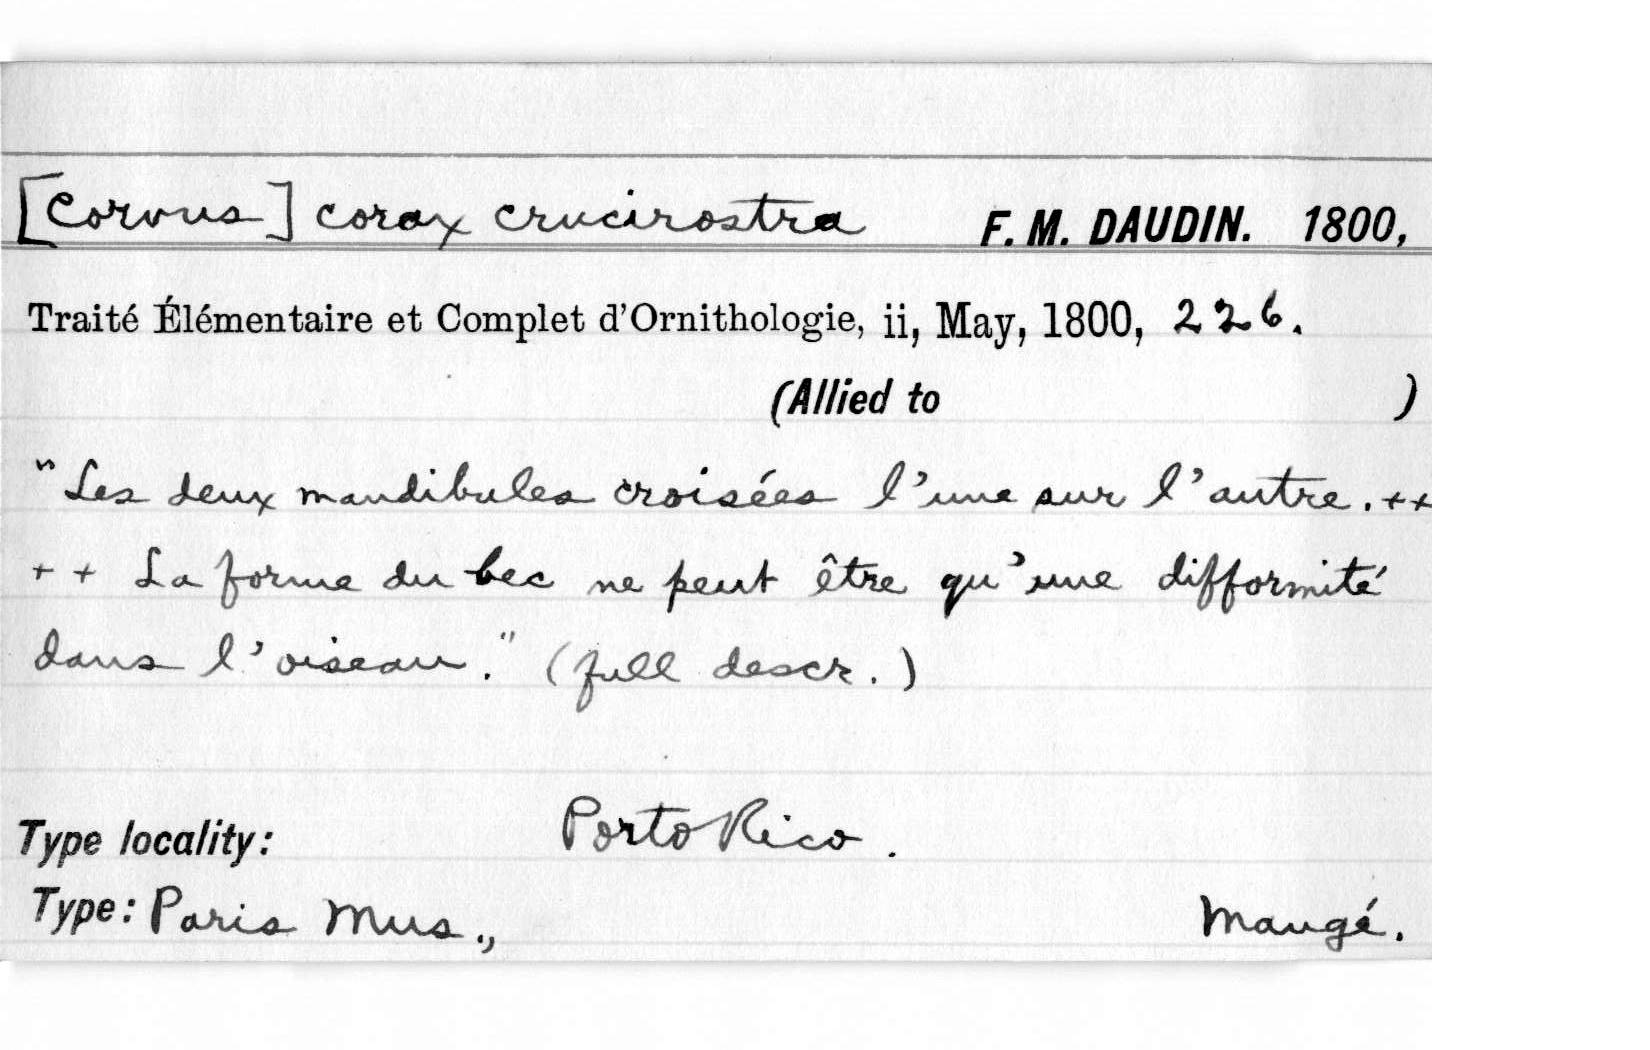 [Corvus] corax crucirostra F. M. DAUDIN. 1800,
Traité Élémentaire et Complet d'Ornithologie, ii, May, 1800, 226.
(Allied to )
"Les deux mandibules croisées l'une sur l'autre. ++
++ La forme du bec ne peut être qu'une difformité
dans l'oiseau." (full descr.)
Type locality: Porto Rico.
Type: Paris Mus., Maugé.